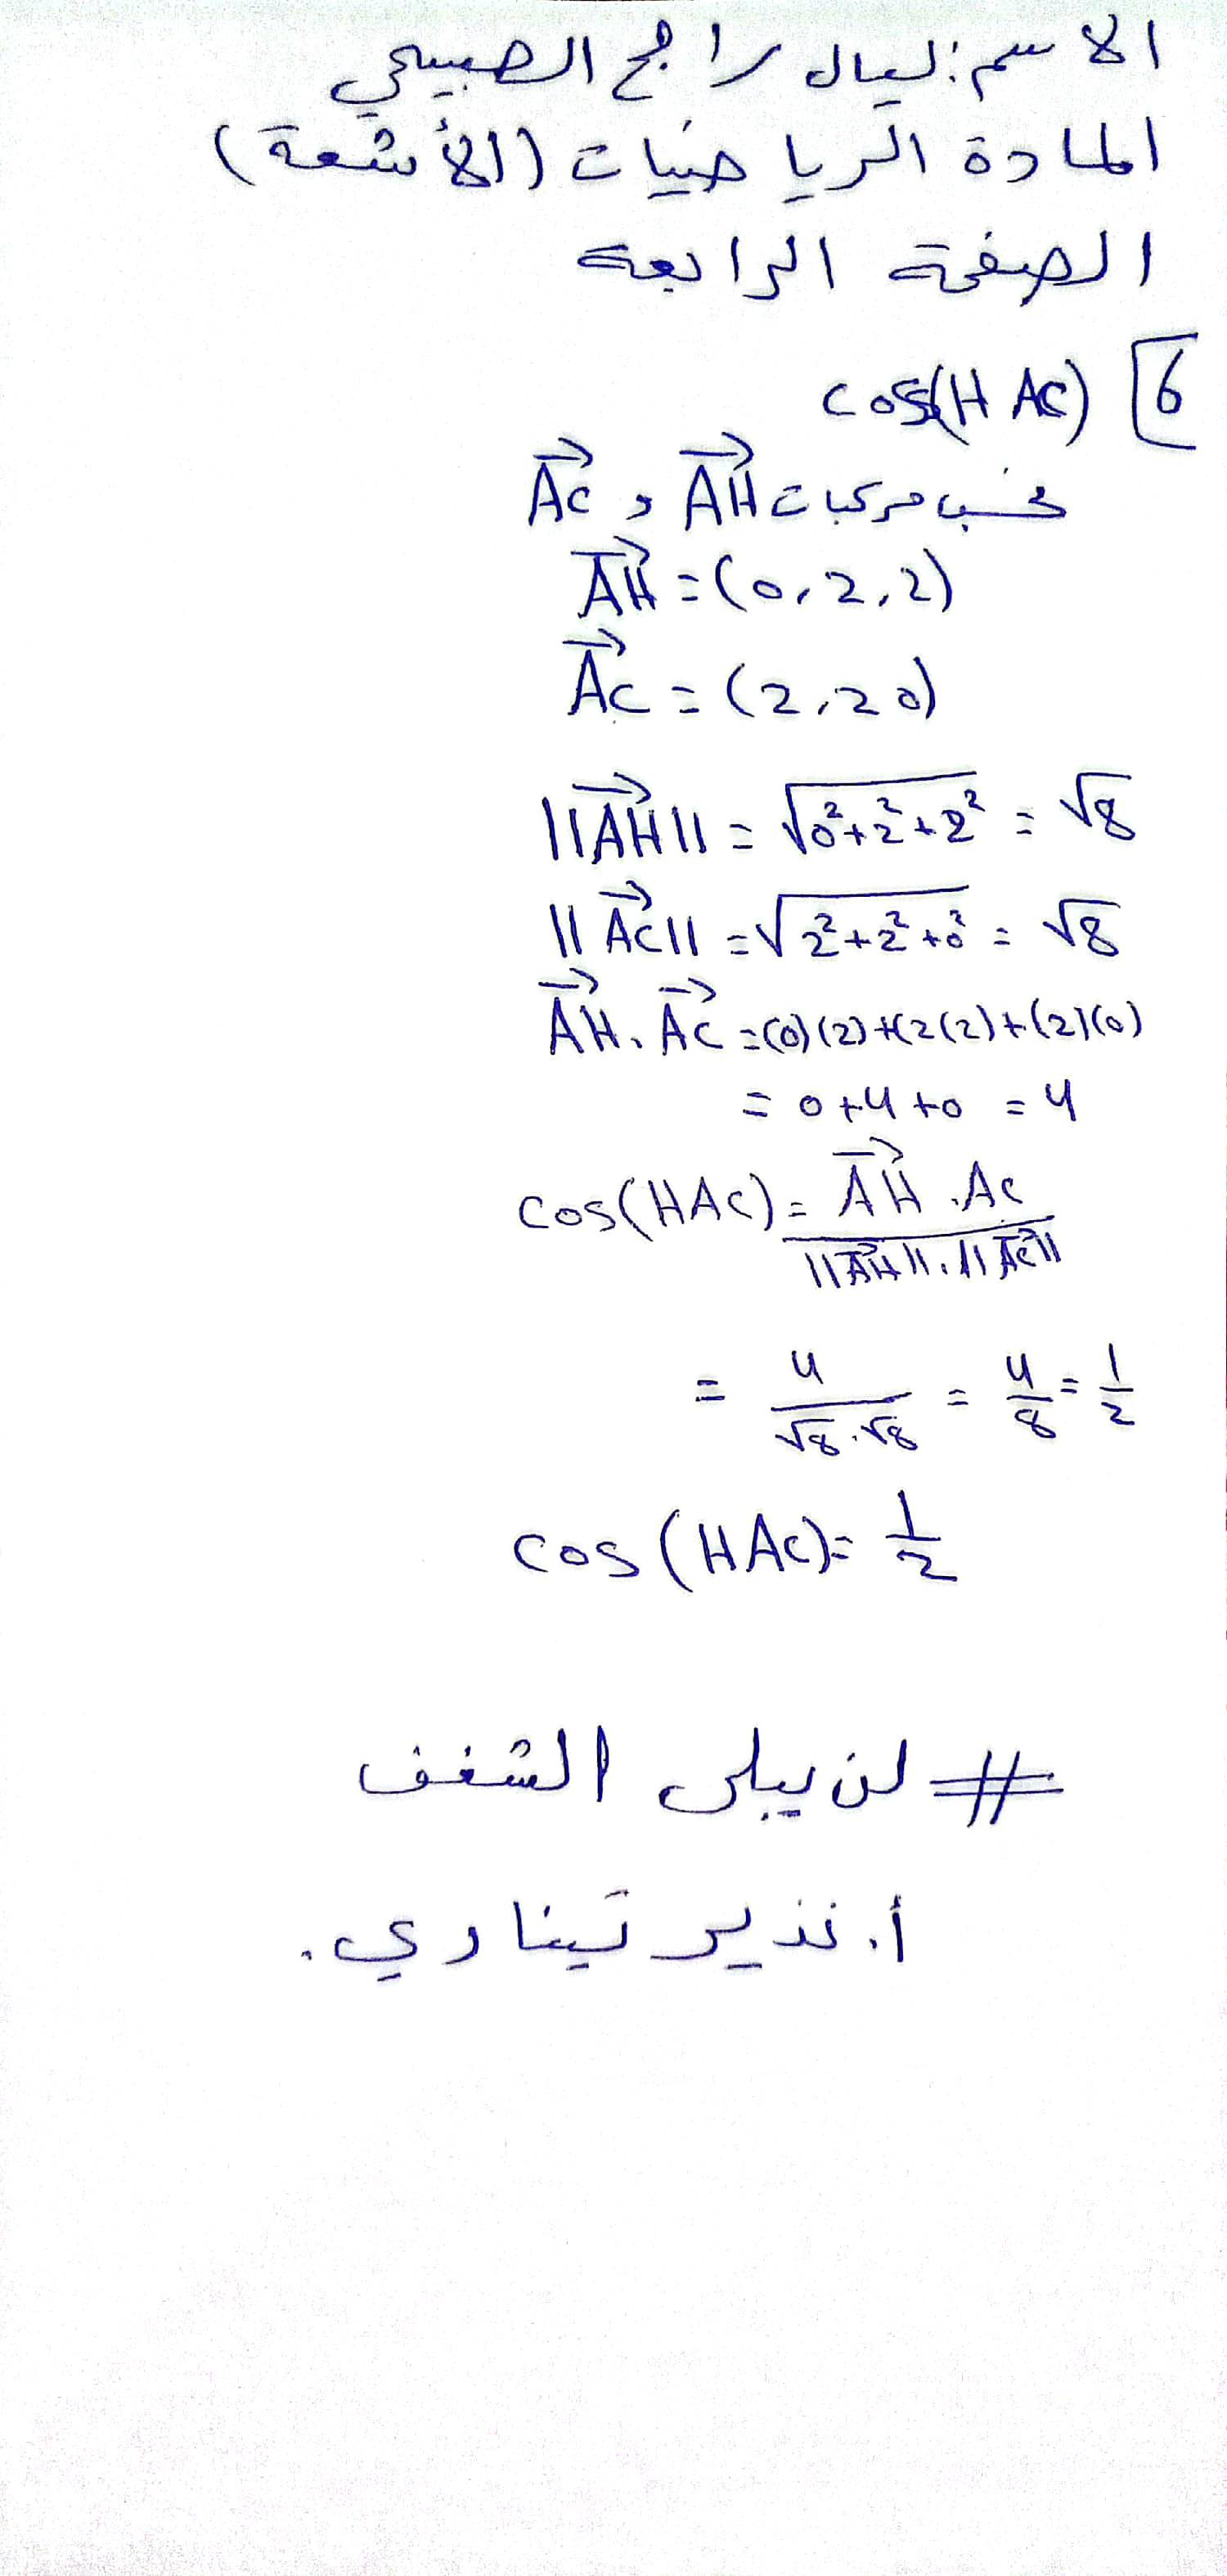 الاسم: ليال رابح الصبيحي
المادة الرياضيات (الأشعة)
الصفحة الرابعة
6] cos(HAC)
نحسب مركبات AH⃗ و AC⃗
AH⃗ = (0, 2, 2)
AC⃗ = (2, 2 0)
||AH⃗|| = √(0² + 2² + 2²) = √8
||AC⃗|| = √(2² + 2² + 0²) = √8
AH⃗ . AC⃗ = (0)(2) + (2(2) + (2)(0)
= 0 + 4 + 0 = 4
cos(HAC) = AH⃗ . AC / ||AH⃗|| . ||AC⃗||
= 4 / √8 . √8 = 4/8 = 1/2
cos (HAC) = 1/2
# لن يبلى الشغف
أ. نذير تيناوي.